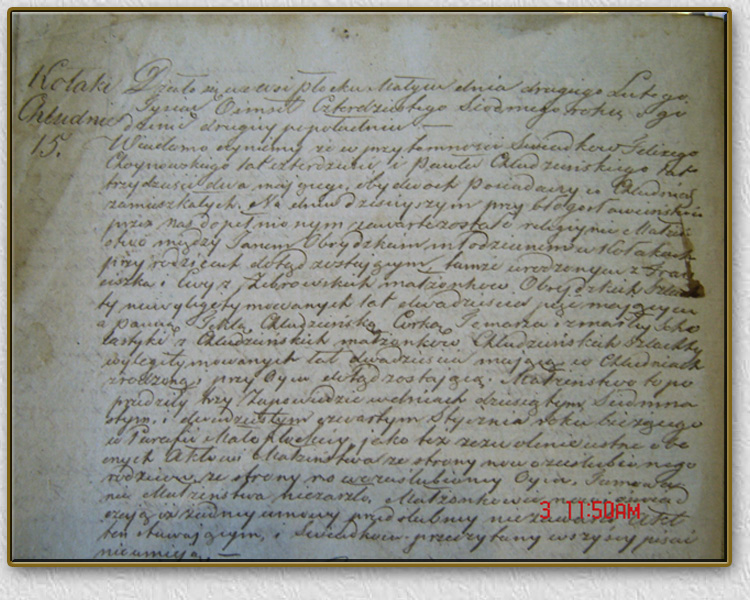 Kołaki
Chludnie
15.
Działo się we wsi Płocku Małym dnia drugiego Lutego
Tysiąc Ośmset Czterdziestego Siódmego roku o go
dzinie drugiey popołudniu
Wiadomo czyniemy że w przytomności Świadków Felixego
Choynowskiego lat czterdzieści i Pawła Chludzińskiego lat
trzydzieści dwa mającego, obydwóch Posiadaczy w Chludniach
zamieszkałych. Na dniu dzisieyszym przy błogosławieństwie
przez nas dopełnionym zawarte zostało religijne Małżeń
stwo między Janem Obrydzkim młodzianem w Kołakach
przy rodzicach dotąd zostającym, tamże urodzonym z Fran
ciszka i Ewy z Żebrowskich małżonków Obrydzkich Szlach
ty niewylegitymowanych lat dwadzieścia pięć mającym
a panną Teklą Chludzińską Córką Tomasza i zmarłej Scho
lastyki z Chludzińskich małżonków Chludzińskich Szlachty
wylegitymowanych lat dwadzieścia mającą w Chludniach
zrodzoną przy Oycu dotąd zostającą. Małżeństwo to po
przedziły trzy Zapowiedzie w dniach dziesiątym, Siedmna
stym, i dwudziestym czwartym Stycznia roku bieżącego
w Parafii Mało Płockiey, jako też zezwolenie ustne obe
cnych Aktowi Małżeństwa ze strony nowozaślubionego
rodziców, ze strony nowozaślubioney Oyca. Tamowa
nie Małżeństwa niezaszło. Małżonkowie nowi oświad
czają iż żadney umowy przedślubney niezawarli. Akt
ten stawającym, i Świadkom przeczytany wszyscy pisać
nieumieją.
3 11:50AM